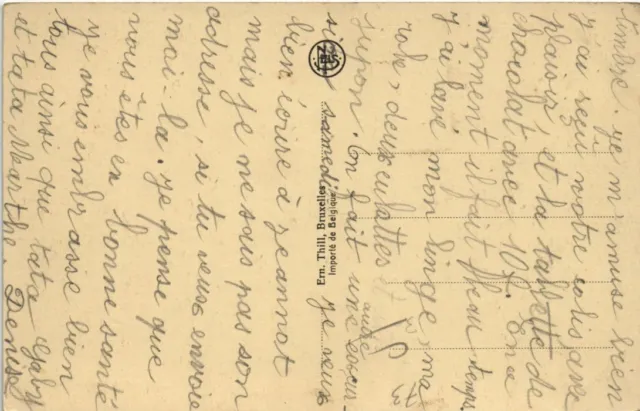 timbre. je m'amuse bien
j'ai reçu votre colis avec
plaisir et la tablette de
chocolat avec 10f. En ce
moment il fait beau temps
j'ai lavé mon linge, ma
robe, deux culottes et
jupon. On fait une excur-
autre
sion samedi. je veux
bien écrire à Jeannot
mais je ne sais pas son
adresse, si tu veux envoie
moi-la. je pense que
vous êtes en bonne santé
je vous embrasse bien
tous ainsi que tata Gaby
et tata Marthe. Denise
Ern. Thill, Bruxelles
Importé de Belgique